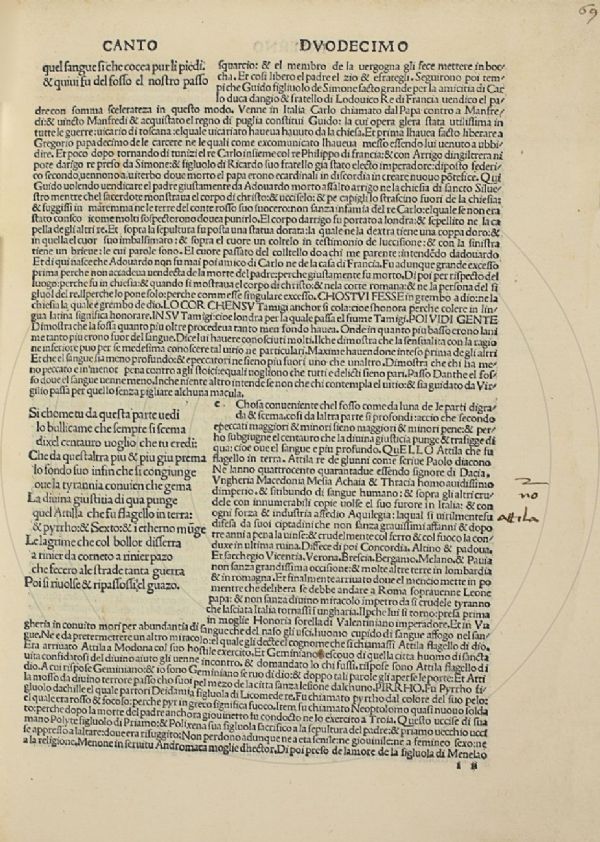 69
CANTO DVODECIMO
quel sangue si che cocea pur li piedi:
& quiui fu del fosso el nostro passo
squarcio: & el membro de la uergogna gli fece mettere in boc
cha. Et cosi libero el padre el zio & efrategli. Seguirono poi tem
pi che Guido figliuolo de Simone facto grande per la amicitia di Car
lo duca dangio & fratello di Lodouico Re di Francia uendico el pa
dre con somma scelerateza in questo modo. Venne in Italia Carlo chiamato dal Papa contro a Manfre
di: & uincto Manfredi & acquistato el regno di puglia constitui Guido: la cui opera glera stata utilissima in
tutte le guerre: uicario di toscana: elquale uicariato haueua hauuto da la chiesa. Et prima lhauea facto liberare a
Gregorio papa decimo de le carcere ne le quali come excomunicato lhaueua messo essendo lui uenuto a ubbi
dire. Et poco dapo tornando di tunizi el re Carlo insieme col re Philippo di francia: & con Arrigo dingilterra ni
pote darigo re preso da Simone: & figluolo di Ricardo suo fratello gia stato electo imperadore: diposto federi
co secondo, uennono a uiterbo doue morto el papa erono ecardinali in discordia in creare nuouo pótefice. Qui
Guido uolendo uendicare el padre giustamente da Adouardo morto assalto arrigo ne la chiesia di sancto Silue
stro mentre chel sacerdote monstraua el corpo di christo: & ucciselo: & pe capigli lo strascino fuori de la chiesia:
& fuggissi in maremma ne le terre del conte rosso suo suocero non sanza infamia del re Carlo: elquale se non era
stato conscio come molti sospectorono douea punirlo. El corpo darrigo fu portato a londra: & sepellito ne la ca
pella degli altri re. Et sopra la sepultura fu posta una statua dorata: la quale ne la dextra tiene una coppa doro: &
in quella el cuor suo imbalsimato: & sopra el cuore un coltelo in testimonio de luccisione: & con la sinistra
tiene un brieue: le cui parole sono. El cuore passato del coltello do a chi me parente: intendédo dadouardo
Et di qui nasce che Adouardo non fu mai poi amico di Carlo ne de la casa di Francia. Fu adunque grande excesso
prima perche non accadeua uendecta de la morte del padre: perche giustamente fu morto. Di poi per rispecto del
luogo: perche fu in chiesia: & quando si monstraua el corpo di christo: & ne la corte romana: & ne la persona del fi
gluol dei re. Ilperche lo pone solo: perche commesse singulare excesso. CHOSTVI FESSE in grembo a dio: ne la
chiesia la quale e grembo de dio. LO COR CHENSV Tamigi anchor si cola: cioe shonora perche colere in lin
gua latina significa honorare. IN SV Tamigi: cioe londra per la quale passa el fiume Tamigi. POI VIDI GENTE
Dimostra che la fossa quanto piu oltre procedeua tanto men fondo hauea. Onde in quanto piu basso crono lani
me tanto piu crono fuor del sangue. Dice lui hauere conosciuti molti. Ilche dimostra che la sensualita con la ragio
ne inferiore puo per se medesima conoscere tal uirio ne particulari. Maxime hauendone inteso prima degli altri
Et che el sangue sia meno profondo: & epeccatori ne sieno piu fuori uno che unaltro. Dimostra che chi ha me
no peccato e in menor pena contro a gli stoici: equali uogliono che tutti e delicti sieno pari. Passo Danthe el fos
so doue el sangue uenne meno. Inche niente altro intende se non che chi contempla el uitio: & sia guidato da Vir
gilio passa per quello senza pigliare alchuna macula.
Si chome tu da questa parte uedi
lo bullicame che sempre si scema
dixel centauro uoglio che tu credi:
Che da questaltra piu & piu giu prema
lo fondo suo infin che si congiunge
oue la tyrannia conuien che gema
La diuina giustitia di qua punge
quel Attilla che fu flagello in terra:
& pyrrho: & Sexto: & i etherno müge
Le lagrime che col bollor disserra
a rinier da corneto a rinier pazo
che fecero ale strade tanta guerra
Poi si riuolse & ripassossi el guazo.
c Chosa conueniente chel fosso come da luna de le parti digra
da & scema, cosi da laltra parte si profondi: accio che secondo
epeccati maggiori & minori sieno maggiori & minori pene: & per
ho subgiugne el centauro che la diuina giustitia punge & trafigge di
qua: cioe oue el sangue e piu profondo. QVELLO Attila che fu
flagello in terra. Attila re de glunni come scriue Paolo diacono
Ne lanno quattrocento quarantadue essendo signore di Dacia,
Vngheria Macedonia Mesia Achaia & Thracia homo audissimo
dimperio. & sitibundo di sangue humano: & sopra gli altri cru
dele con innumerabili copie uolse el suo furore in Italia: & con
ogni forza & industria assedio Aquilegia: laqual si uirilmente fu
difesa da suoi ciptadini che non sanza grauissimi affanni & dopo
tre anni a pena la uinse: & crudelmente col ferro & col fuoco la con
duxe in ultima ruina. Disfece di poi Concordia. Altino & padoua.
Et sarchegio Vicentia. Verona. Brescia. Bergamo. Melano. & Pauia
non sanza grandissima occisione: & molte altre terre in lombardia
& in romagna. Et finalmente arriuato doue el mencio mette in po
mentre che delibera se debbe andare a Roma soprauenne Leone
papa: & non sanza diuino miracolo impetro da si crudele tyranno
che lasciata Italia tornassi i ungharia. Ilpche lui si torno: presa prima
in moglie Honoria sorella di Valentiniano imperadore. Et in Vn
gheria in conuito mori per abundantia di sangue che del naso gli usci. huomo cupido di sangue affogo nel san
gue. Ne e da pretermettere un altro miracolo: el quale gli decte el cognome che si chiamassi Attila flagello di dio.
Era arriuato Attila a Modona col suo hostile exercito. Et Geminiano e escouo di quella citta huomo di sancta
uita confidatosi del diuino aiuto gli uenne incontro, & domandato lo chi fussi. rispose sono Attila flagello di
dio. A cui rispose Geminiano: & io sono Geminiano seruo di dio: & doppo tal parole gli aperse le porte: & Atti
la mosso da diuino terrore passo cho suoi pel mezo de la citta sanza lesione dalchuno. PIRRHO. Fu Pyrrho fi
gluolo dachille el quale partori Deidamia figluola di Licomede re. Fu chiamato pyrrho dal colore del suo pelo:
el quale era rosso & focoso: perche pyr in greco significa fuoco. Item fu chiamato Neoptolemo quasi nuouo solda
to: perche dopo la morte del padre anchora giouinetto fu condocto ne lo exercito a Troia. Questo uccise di sua
mano Polyte figluolo di Priamo: & Polixena sua figluola sacrifico a la sepultura del padre: & priamo uecchio ucci
se appresso a laltare: doue era rifuggito: Non perdono adunque ne a eta senile: ne giouinile: ne a femineo sexo: ne
a la religione. Menone in seruitu Andromaca moglie dhector. Di poi preso de lamore de la figluola di Menelao
no
attila